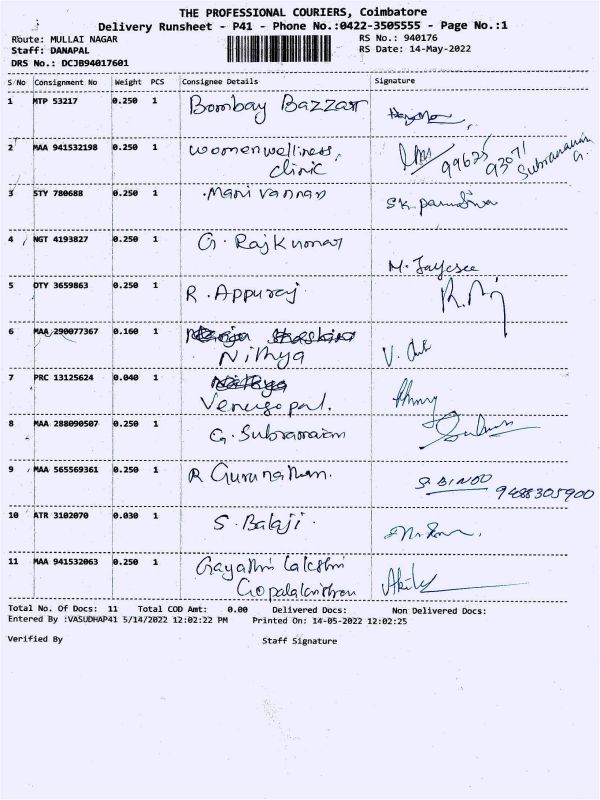 THE PROFESSIONAL COURIERS, Coimbatore
Delivery Runsheet - P41 - Phone No.:0422-3505555 - Page No.:1
Route: MULLAI NAGAR RS No.: 940176
Staff: DANAPAL RS Date: 14-May-2022
DRS No.: DCJB94017601
S No Consignment No Weight PCS Consignee Details Signature
1 MTP 53217 0.250 1 Bombay Bazzar
2 MAA 941532198 0.250 1 women welliness, 99625 93071
clinic Subramaniam G.
3 STY 780688 0.250 1 Manivannan
4 NGT 4193827 0.250 1 G. Rajkumar
M. Jaysee
5 OTY 3659863 0.250 1 R. Appuraj
6 MAA 290077367 0.160 1
Nithya
7 PRC 13125624 0.040 1
Venugopal.
8 MAA 288090507 0.250 1 G. Subramaniam
9 MAA 565569361 0.250 1 R Gurunathan.
9488305900
10 ATR 3102070 0.030 1 S. Balaji.
11 MAA 941532063 0.250 1 Gayathri Lakshmi
Gopalakrishnan
Total No. Of Docs: 11 Total COD Amt: 0.00 Delivered Docs: Non Delivered Docs:
Entered By :VASUDHAP41 5/14/2022 12:02:22 PM Printed On: 14-05-2022 12:02:25
Verified By Staff Signature